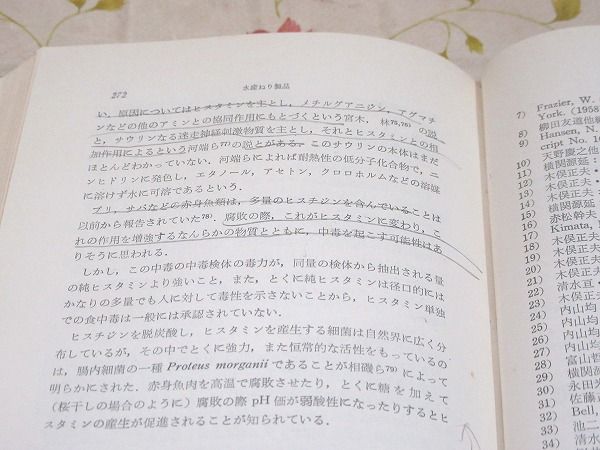 272
水産ねり製品
い．原因についてはヒスタミンを主とし，メチルグアニジン，アグマチ
ンなどの他のアミンとの協同作用にもとづくという宮木，林75,76)の説
と，サウリンなる迷走神経刺激物質を主とし，それとヒスタミンとの相
加作用によるという河端ら77)の説とがある．このサウリンの本体はまだ
ほとんどわかっていない．河端らによれば耐熱性の低分子化合物で，ニ
ンヒドリンに発色し，エタノール，アセトン，クロロホルムなどの溶媒
に溶けず水に可溶であるという．
ブリ，サバなどの赤身魚類は，多量のヒスチジンを含んでいることは
以前から報告されていた78)．腐敗の際，これがヒスタミンに変わり，こ
れの作用を増強するなんらかの物質とともに，中毒を起こす可能性はあ
りそうに思われる．
しかし，この中毒の中毒検体の毒力が，同量の検体から抽出される量
の純ヒスタミンより強いこと，また，とくに純ヒスタミンは径口的には
かなりの多量でも人に対して毒性を示さないことから，ヒスタミン単独
での食中毒は一般には承認されていない．
ヒスチジンを脱炭酸し，ヒスタミンを産生する細菌は自然界に広く分
布しているが，その中でとくに強力，また恒常的な活性をもっているの
は，腸内細菌の一種 Proteus morganii であることが相磯ら79)によって
明らかにされた．赤身魚肉を高温で腐敗させたり，とくに糖を加えて
（桜干しの場合のように）腐敗の際 pH 価が弱酸性になったりするとヒ
スタミンの産生が促進されることが知られている．
Frazier, W.
7) York. (1958
8) 柳田友道他編
9) Hansen, N.
cript No. 16
10) 天野慶之他
11) 横関源延：
12) 木俣正夫・
13) 木俣正夫・
14) 木俣正夫・
15) 横関源延
16) 赤松幹斗
17) Kimata, M
18) 木俣正夫
19) 木俣正夫
20) 木俣正夫
21) 清水亘・
22) 木俣正夫
23) 木俣正夫
24) 内山均・
25) 内山均
26) 内山均
27) 内山均
28) 内山均
29) 富山哲
30) 横関源
31) 永田光
31) 佐藤正
32) Bell,
33) 池二
34) 清水